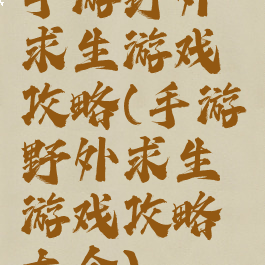 手游野外
求生游戏
攻略(手游
野外求生
游戏攻略
大全)